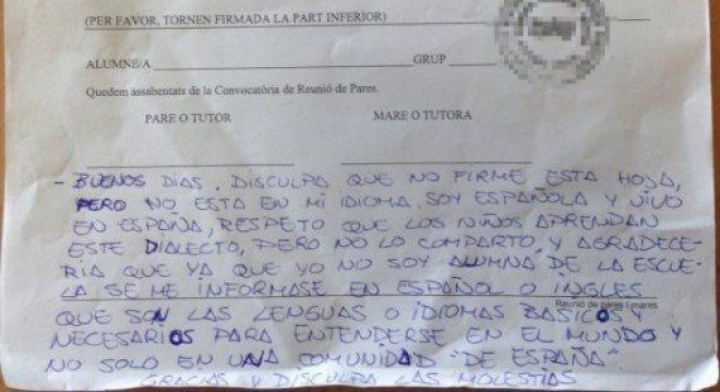 (PER FAVOR, TORNEN FIRMADA LA PART INFERIOR)
ALUMNE/A GRUP
Quedem assabentats de la Convocatòria de Reunió de Pares.
PARE O TUTOR MARE O TUTORA
- BUENOS DIAS. DISCULPA QUE NO FIRME ESTA HOJA,
PERO NO ESTA EN MI IDIOMA. SOY ESPAÑOLA Y VIVO
EN ESPAÑA, RESPETO QUE LOS NIÑOS APRENDAN
ESTE DIALECTO, PERO NO LO COMPARTO, Y AGRADECE-
RIA QUE YA QUE YO NO SOY ALUMNA DE LA ESCUE-
LA SE ME INFORMASE EN ESPAÑOL O INGLES
Reunió de pares i mares
QUE SON LAS LENGUAS O IDIOMAS BASICOS Y
NECESARIOS PARA ENTENDERSE EN EL MUNDO Y
NO SOLO EN UNA COMUNIDAD "DE ESPAÑA"
GRACIAS Y DISCULPA LAS MOLESTIAS